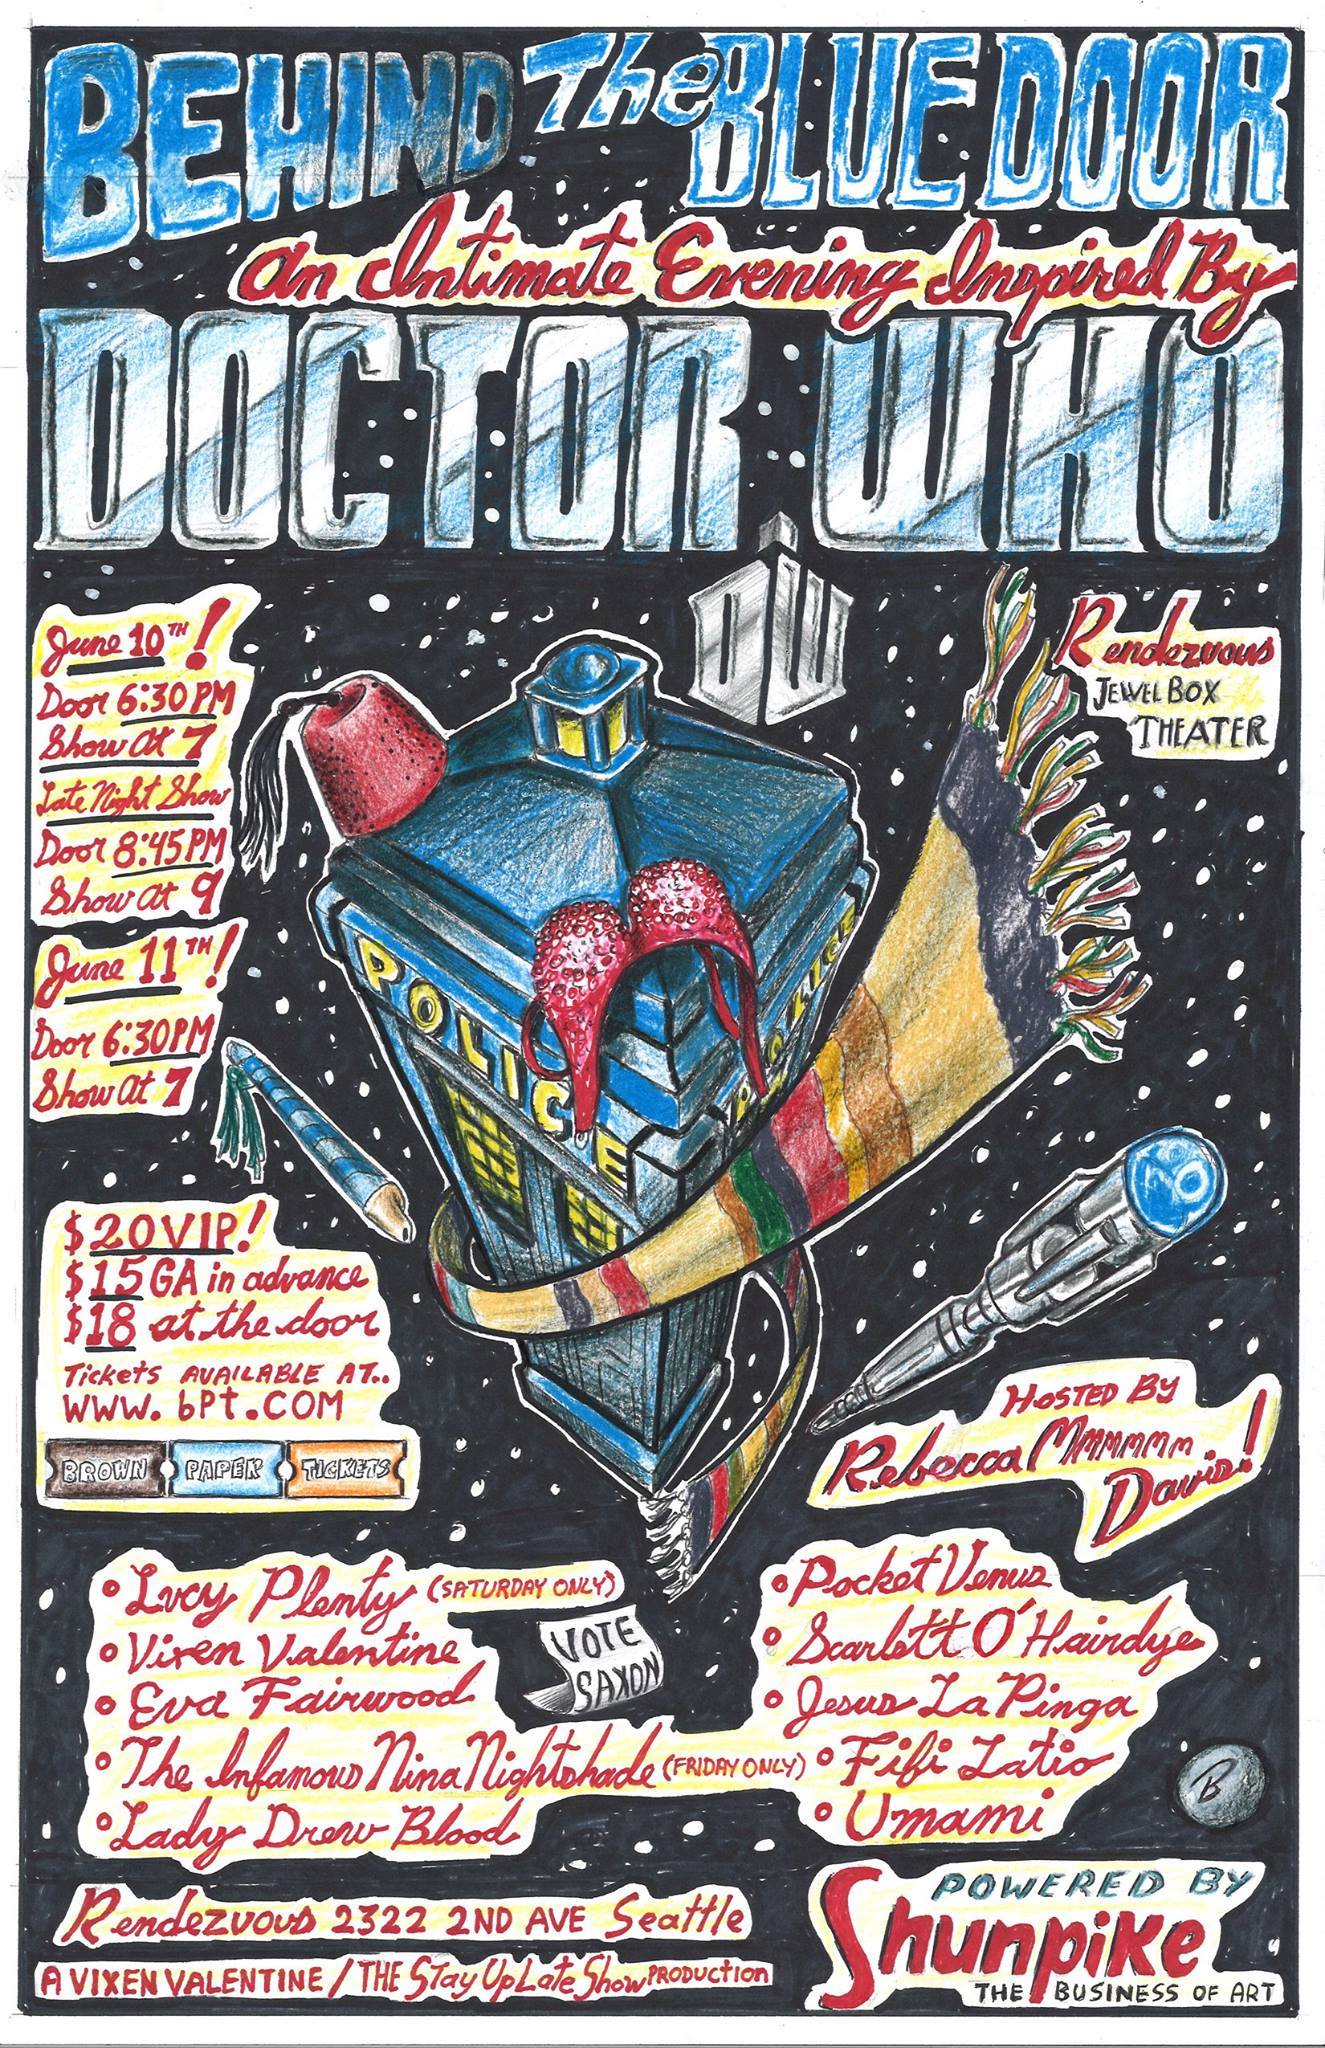 BEHIND The BLUE DOOR
An Intimate Evening Inspired By
DOCTOR WHO
DW
June 10TH!
Door 6:30 PM
Show At 7
Late Night Show
Door 8:45 PM
Show At 9
June 11TH!
Door 6:30 PM
Show At 7
Rendezvous
JEWEL BOX
THEATER
POLICE
$20 VIP!
$15 GA in advance
$18 at the door
TICKETS AVAILABLE AT..
WWW.bPt.COM
BROWN PAPER TICKETS
HOSTED BY
Rebecca Mmmmmm
Davis!
• Lucy Plenty (SATURDAY ONLY)
• Vixen Valentine
• Eva Fairwood
• The Infamous Nina Nightshade (FRIDAY ONLY)
• Lady Drew Blood
VOTE
SAXON
• Pocket Venus
• Scarlett O'Hairdye
• Jesus La Pinga
• Fifi Latio
• Umami
B
Rendezvous 2322 2ND AVE Seattle
A VIXEN VALENTINE / THE Stay Up Late Show PRODUCTION
POWERED BY
Shunpike
THE BUSINESS OF ART